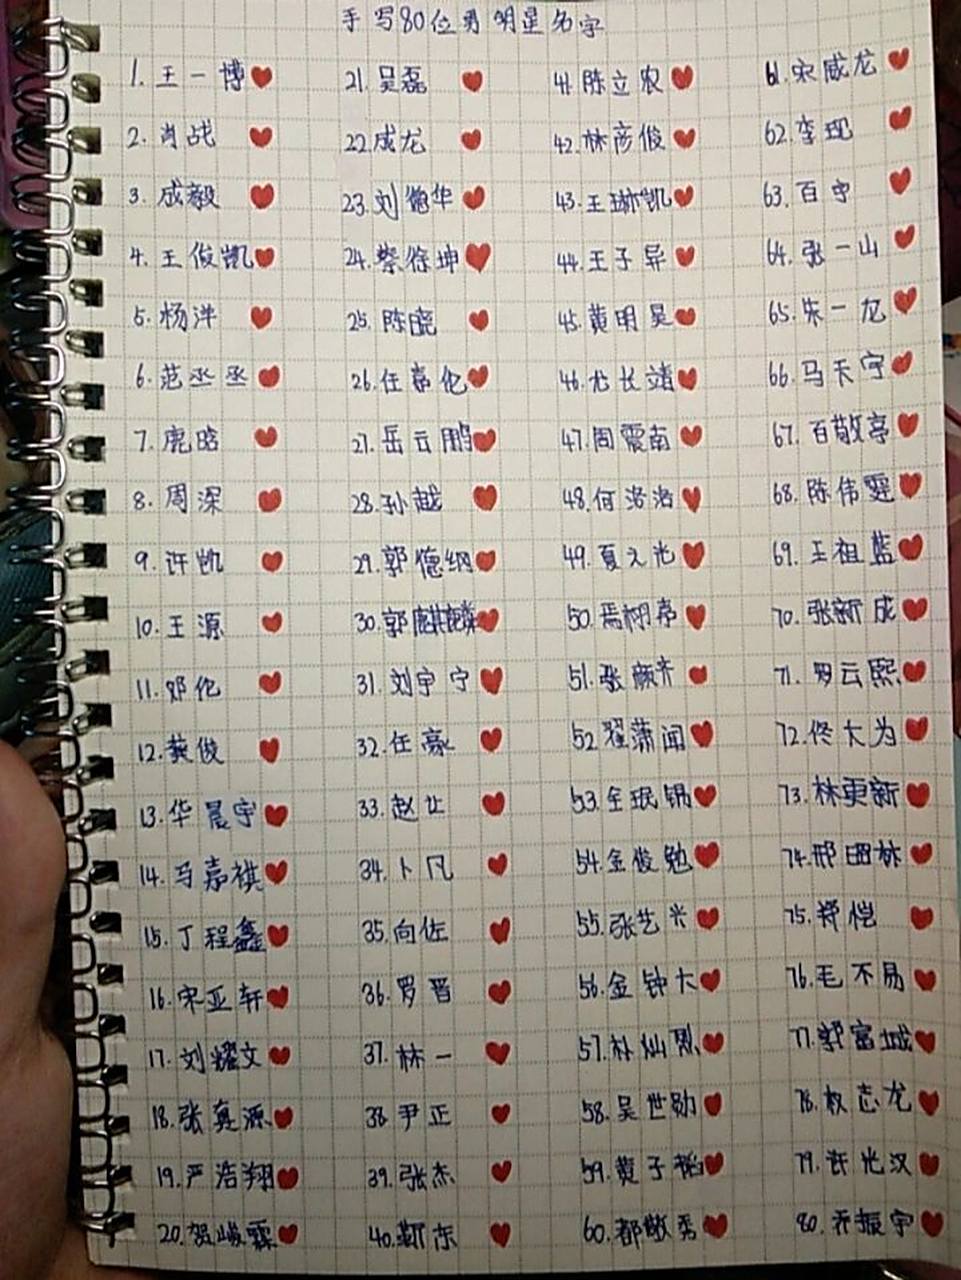 手写80位男明星名字
1. 王一博
2. 肖战
3. 成毅
4. 王俊凯
5. 杨洋
6. 范丞丞
7. 鹿晗
8. 周深
9. 许凯
10. 王源
11. 邓伦
12. 龚俊
13. 华晨宇
14. 马嘉祺
15. 丁程鑫
16. 宋亚轩
17. 刘耀文
18. 张真源
19. 严浩翔
20. 贺峻霖
21. 吴磊
22. 成龙
23. 刘德华
24. 蔡徐坤
25. 陈晓
26. 任嘉伦
27. 岳云鹏
28. 孙越
29. 郭德纲
30. 郭麒麟
31. 刘宇宁
32. 任豪
33. 赵让
34. 卜凡
35. 向佐
36. 罗晋
37. 林一
38. 尹正
39. 张杰
40. 靳东
41. 陈立农
42. 林彦俊
43. 王琳凯
44. 王子异
45. 黄明昊
46. 尤长靖
47. 周震南
48. 何洛洛
49. 夏之光
50. 焉栩嘉
51. 张颜齐
52. 翟潇闻
53. 金珉锡
54. 金俊勉
55. 张艺兴
56. 金钟大
57. 朴灿烈
58. 吴世勋
59. 黄子韬
60. 都敬秀
61. 宋威龙
62. 李现
63. 百宇
64. 张一山
65. 朱一龙
66. 马天宇
67. 百敬亭
68. 陈伟霆
69. 王祖蓝
70. 张新成
71. 罗云熙
72. 佟大为
73. 林更新
74. 邢昭林
75. 郑恺
76. 毛不易
77. 郭富城
78. 权志龙
79. 许光汉
80. 乔振宇